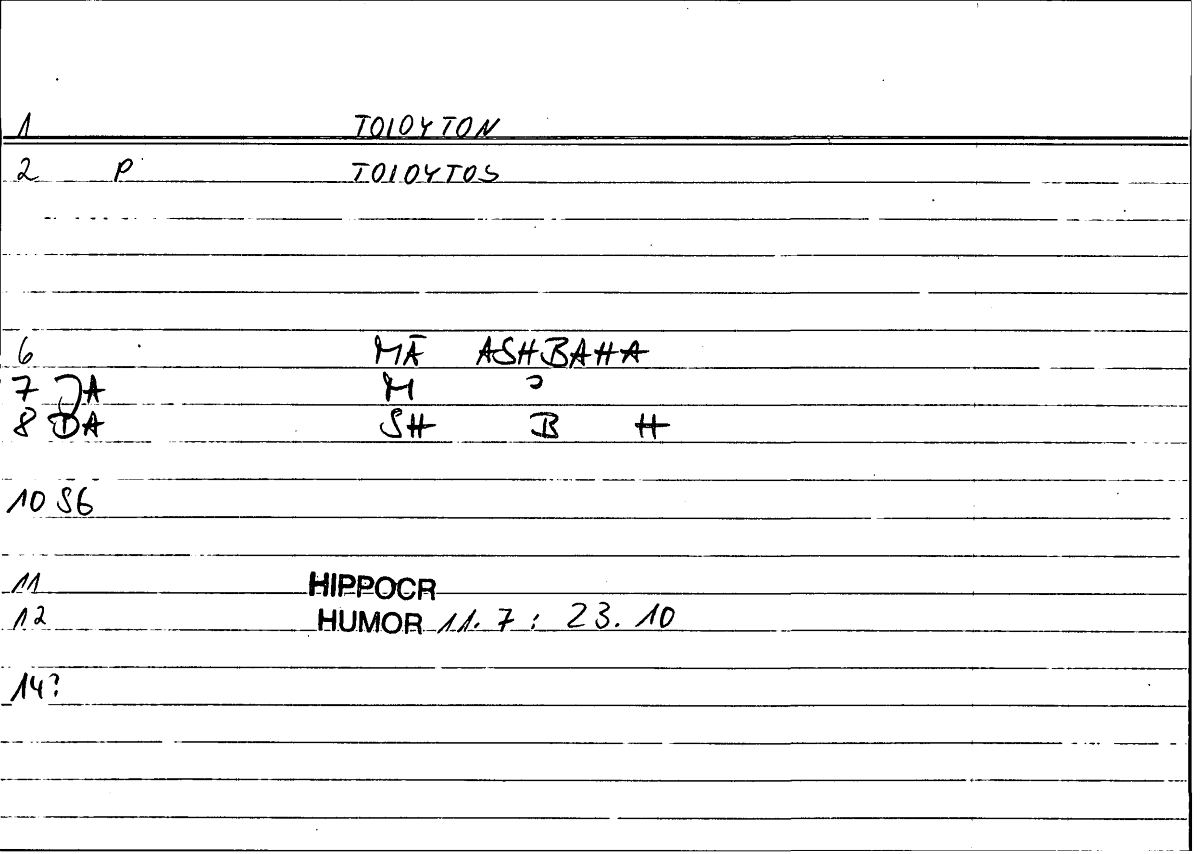 1 TOIOYTON
2 P TOIOYTOS
6 MĀ ASHBAHA
7 JA M ɔ
8 DA SH B H
10 S6
11 HIPPOCR
12 HUMOR 11.7 : 23.10
14?